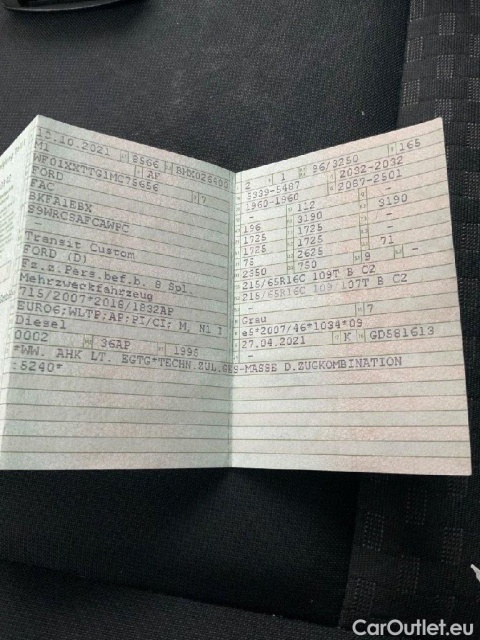 15.10.2021 8566 BHX026400
M1 AF
WF01XXTTG1MC75656 7
FORD
FAC
BKFA1EBX
S9WRCSAFCAWPC
Transit Custom
FORD (D)
Fz.z.Pers.bef.b. 8 Spl.
Mehrzweckfahrzeug
715/2007*2018/1832AP
EURO6;WLTP;AP;PI/CI; M, N1 I
Diesel
0002 36AP 1995
*WW. AHK LT. EGTG*TECHN.ZUL.GES-MASSE D.ZUGKOMBINATION
:5240*
2 1 96/3250 165
5339-5487 2032-2032
1960-1960 2087-2501
- 112 3190
196 3190 -
1725 1725 -
1725 1725 71
75 2625 -
2550 750 9 -
215/65R16C 109T B C2
215/65R16C 109/107T B C2
-
Grau 7
e5*2007/46*1034*09
27.04.2021 K GD581613
CarOutlet.eu